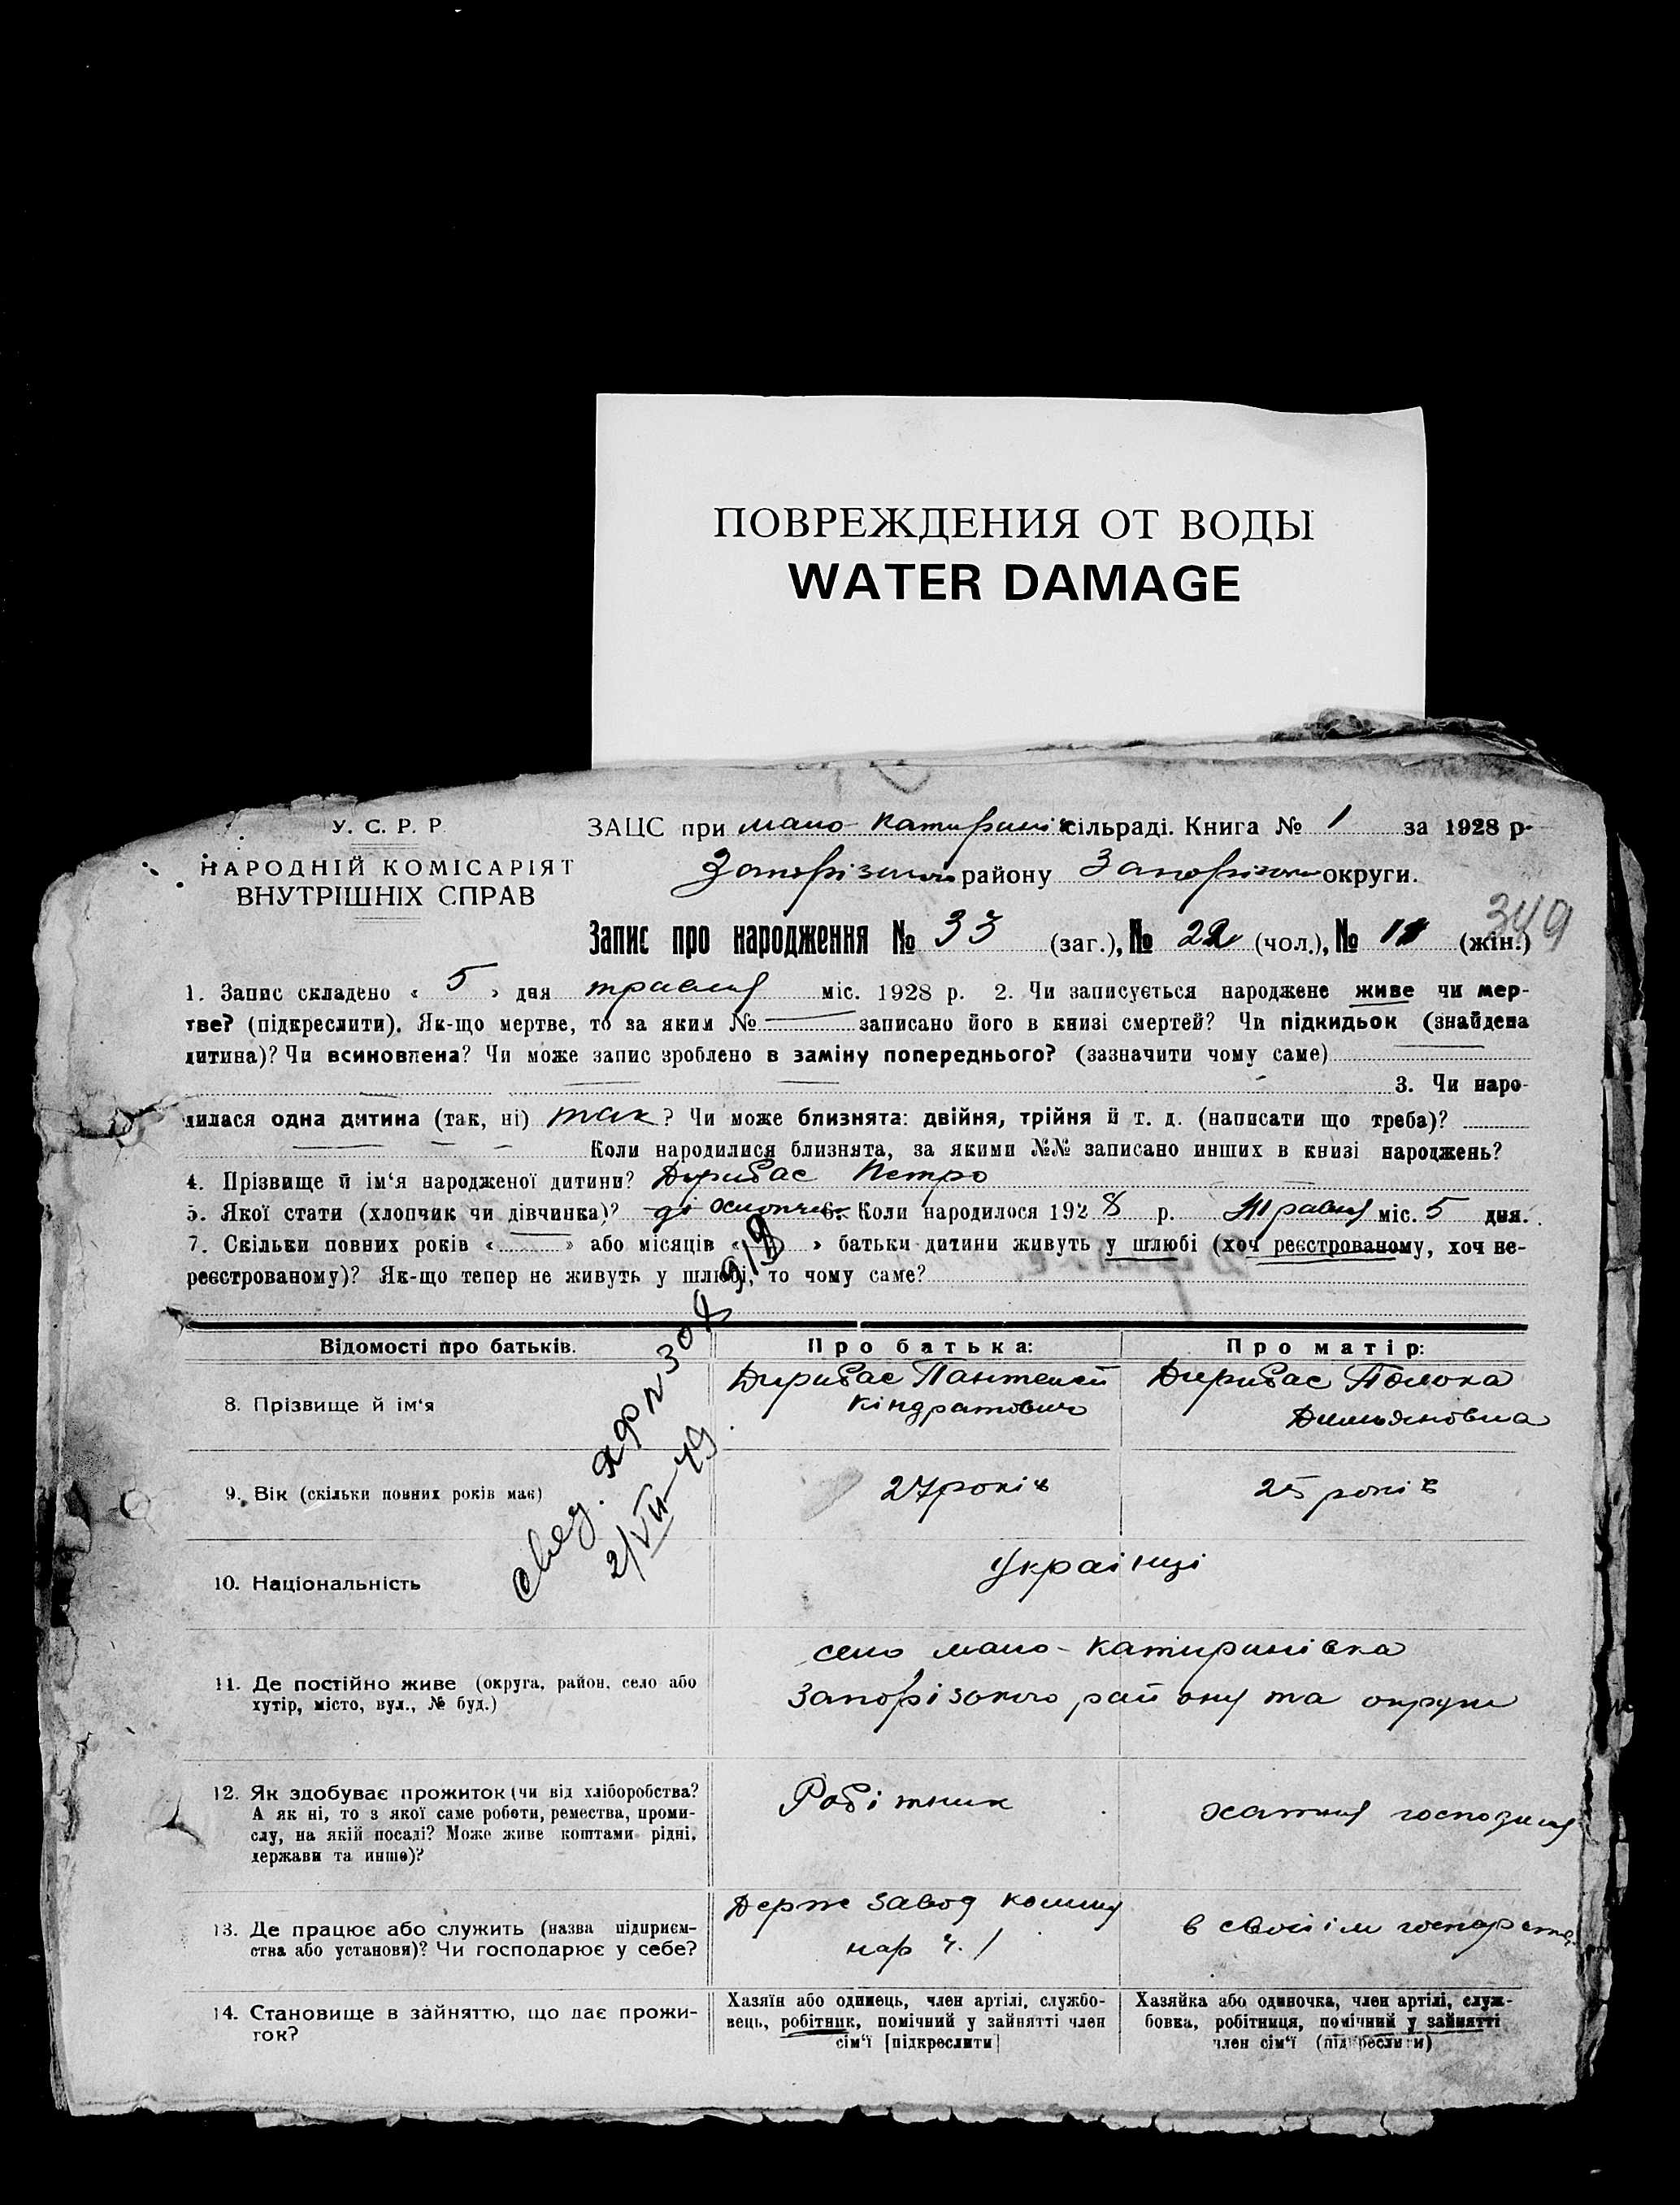 ПОВРЕЖДЕНИЯ ОТ ВОДЫ
WATER DAMAGE
У. С. Р. Р.
НАРОДНІЙ КОМІСАРІЯТ
ВНУТРІШНІХ СПРАВ
ЗАЦС при мало-Катирині сільраді. Книга № 1 за 1928 р.
району округи.
349
Запис про народження № 33 (заг.), № 22 (чол.), № 11 (жін.)
1. Запис складено « 5 » дня травня міс. 1928 р. 2. Чи записується народжене живе чи мер-
тве? (підкреслити). Як-що мертве, то за яким № записано його в книзі смертей? Чи підкидьок (знайдена
дитина)? Чи всиновлена? Чи може запис зроблено в заміну попереднього? (зазначити чому саме)
3. Чи наро-
дилася одна дитина (так, ні) так? Чи може близнята: двійня, трійня й т. д. (написати що треба)?
Коли народилися близнята, за якими №№ записано инших в книзі народжень?
4. Прізвище й ім‘я народженої дитини? Дирибас Петро
5. Якої стати (хлопчик чи дівчинка)? хлопчик 6. Коли народилося 1928 р. Травня міс. 5 дня.
7. Скільки повних років « » або місяців « » батьки дитини живуть у шлюбі (хоч реєстрованому, хоч не-
реєстрованому)? Як-що тепер не живуть у шлюбі, то чому саме?
Відомості про батьків. Про батька: Про матір:
8. Прізвище й ім‘я Дирибас Пантелей Кіндратович Дирибас Дишяновна
свед. 2/VII-49
9. Вік (скільки повних років має) 27 років 25 років
10. Національність Українці
11. Де постійно живе (округа, район, село або
хутір, місто, вул., № буд.)
село мало-Катиринівка
Запорізького району та округи
12. Як здобуває прожиток (чи від хліборобства?
А як ні, то з якої саме роботи, ремества, проми-
слу, на якій посаді? Може живе коштами рідні,
держави та инше)?
Робітник хатня господиня
13. Де працює або служить (назва підприєм-
ства або установи)? Чи господарює у себе?
Держ завод комму
нар ч. 1
в своїм
14. Становище в зайняттю, що дає прожи-
ток?
Хазяїн або одинець, член артілі, службо-
вець, робітник, помічний у зайнятті член
сім‘ї [підкреслити]
Хазяйка або одиночка, член артілі, служ-
бовка, робітниця, помічний у зайнятті
член сім‘ї (підкреслити)